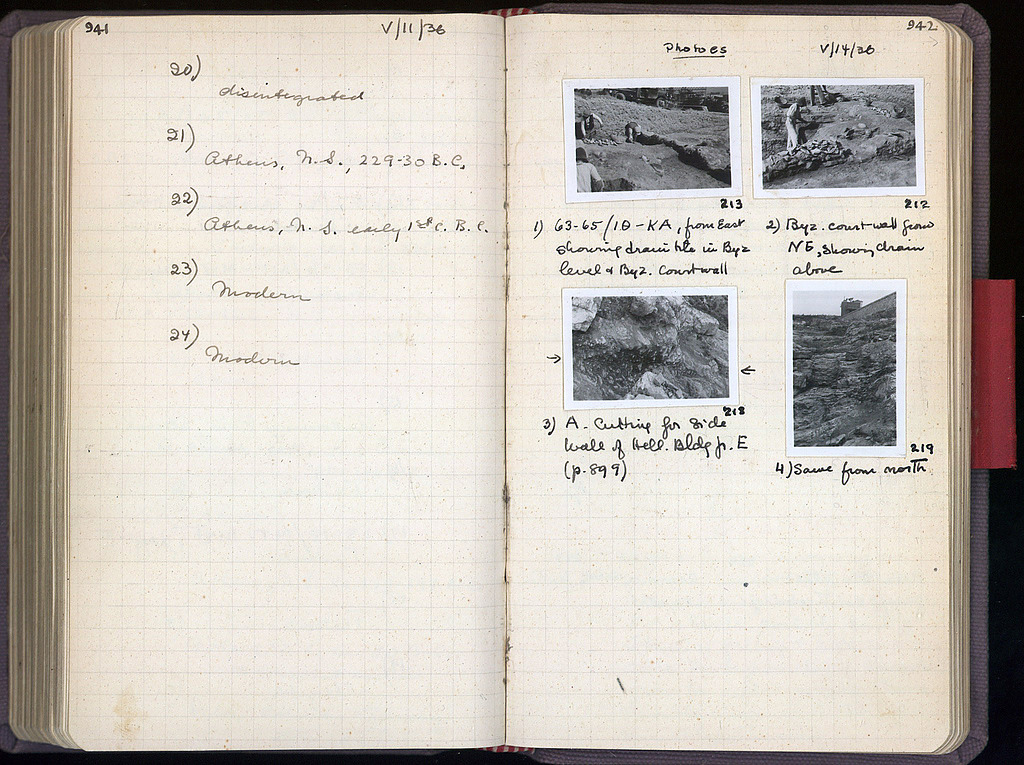 941
V/11/36
20)
disintegrated
21)
Athens, N.S., 229-30 B.C.
22)
Athens, N.S. early 1st C. B.C.
23)
Modern
24)
Modern
942
Photoes
V/14/36
213
212
1) 63-65/ΙΘ-ΚΑ, from East
showing drain tile in Byz
level & Byz. Court wall
2) Byz. court wall from
NE, showing drain
above
218
3) A. Cutting for side
Wall of Hell. Bldg fr. E
(p. 899)
219
4) Same from north